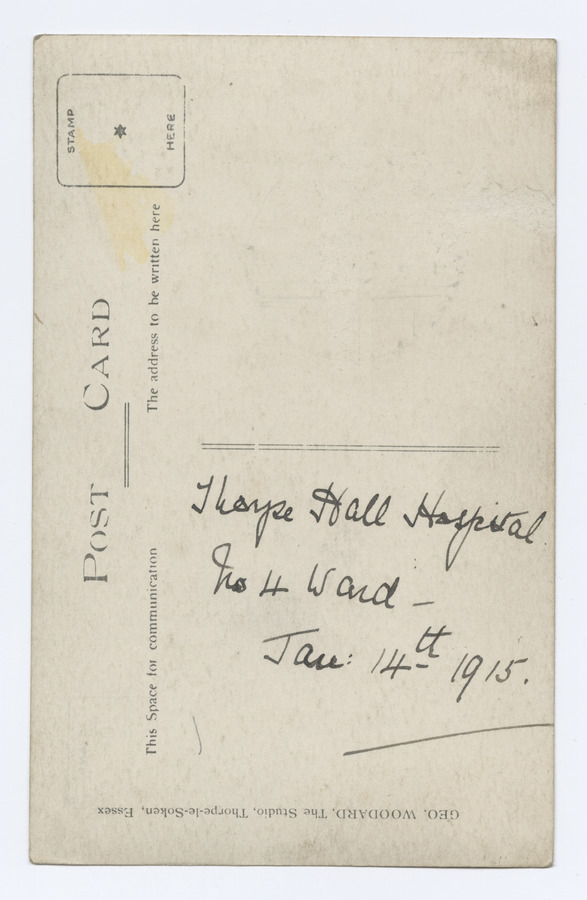 STAMP
HERE
POST CARD
The address to be written here
This Space for communication
Thorpe Hall Hospital
No 4 Ward -
Jan: 14th 1915.
GEO. WOODARD, The Studio, Thorpe-le-Soken, Essex